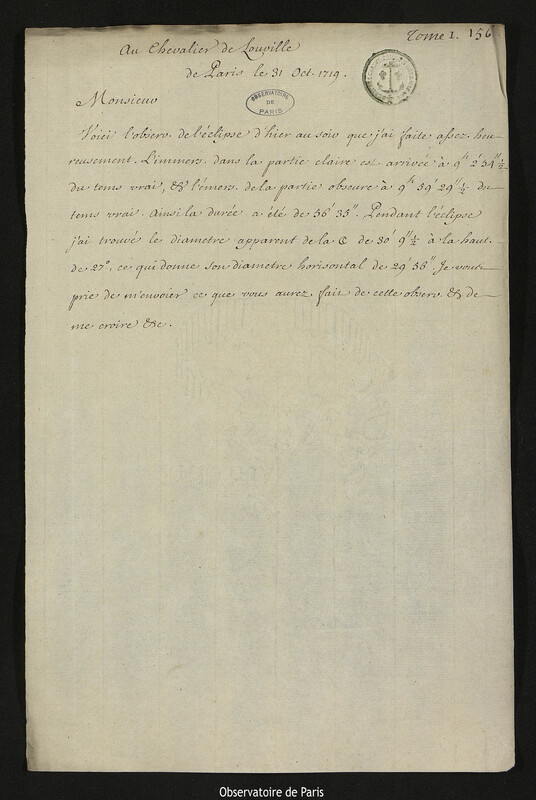 Tome 1. 156
Au Chevalier de Louville
de Paris le 31 Oct. 1719.
OBSERVATOIRE
DE
PARIS
Monsieur
Voici l'observ. de l'éclipse d'hier au soir que j'ai faite assez heu-
reusement. L'immers. dans la partie claire est arrivée à 9h 2' 54" ½
du tems vrai, & l'émers. de la partie obscure à 9h 59' 29" ½ du
tems vrai. Ainsi la durée a été de 56' 35". Pendant l'éclipse
j'ai trouvé le diametre apparent de la ☾ de 30' 9" ½ à la haut.
de 27°, ce qui donne son diametre horisontal de 29' 56". Je vous
prie de m'envoier ce que vous aurez fait de cette observ. & de
me croire &c.
Observatoire de Paris